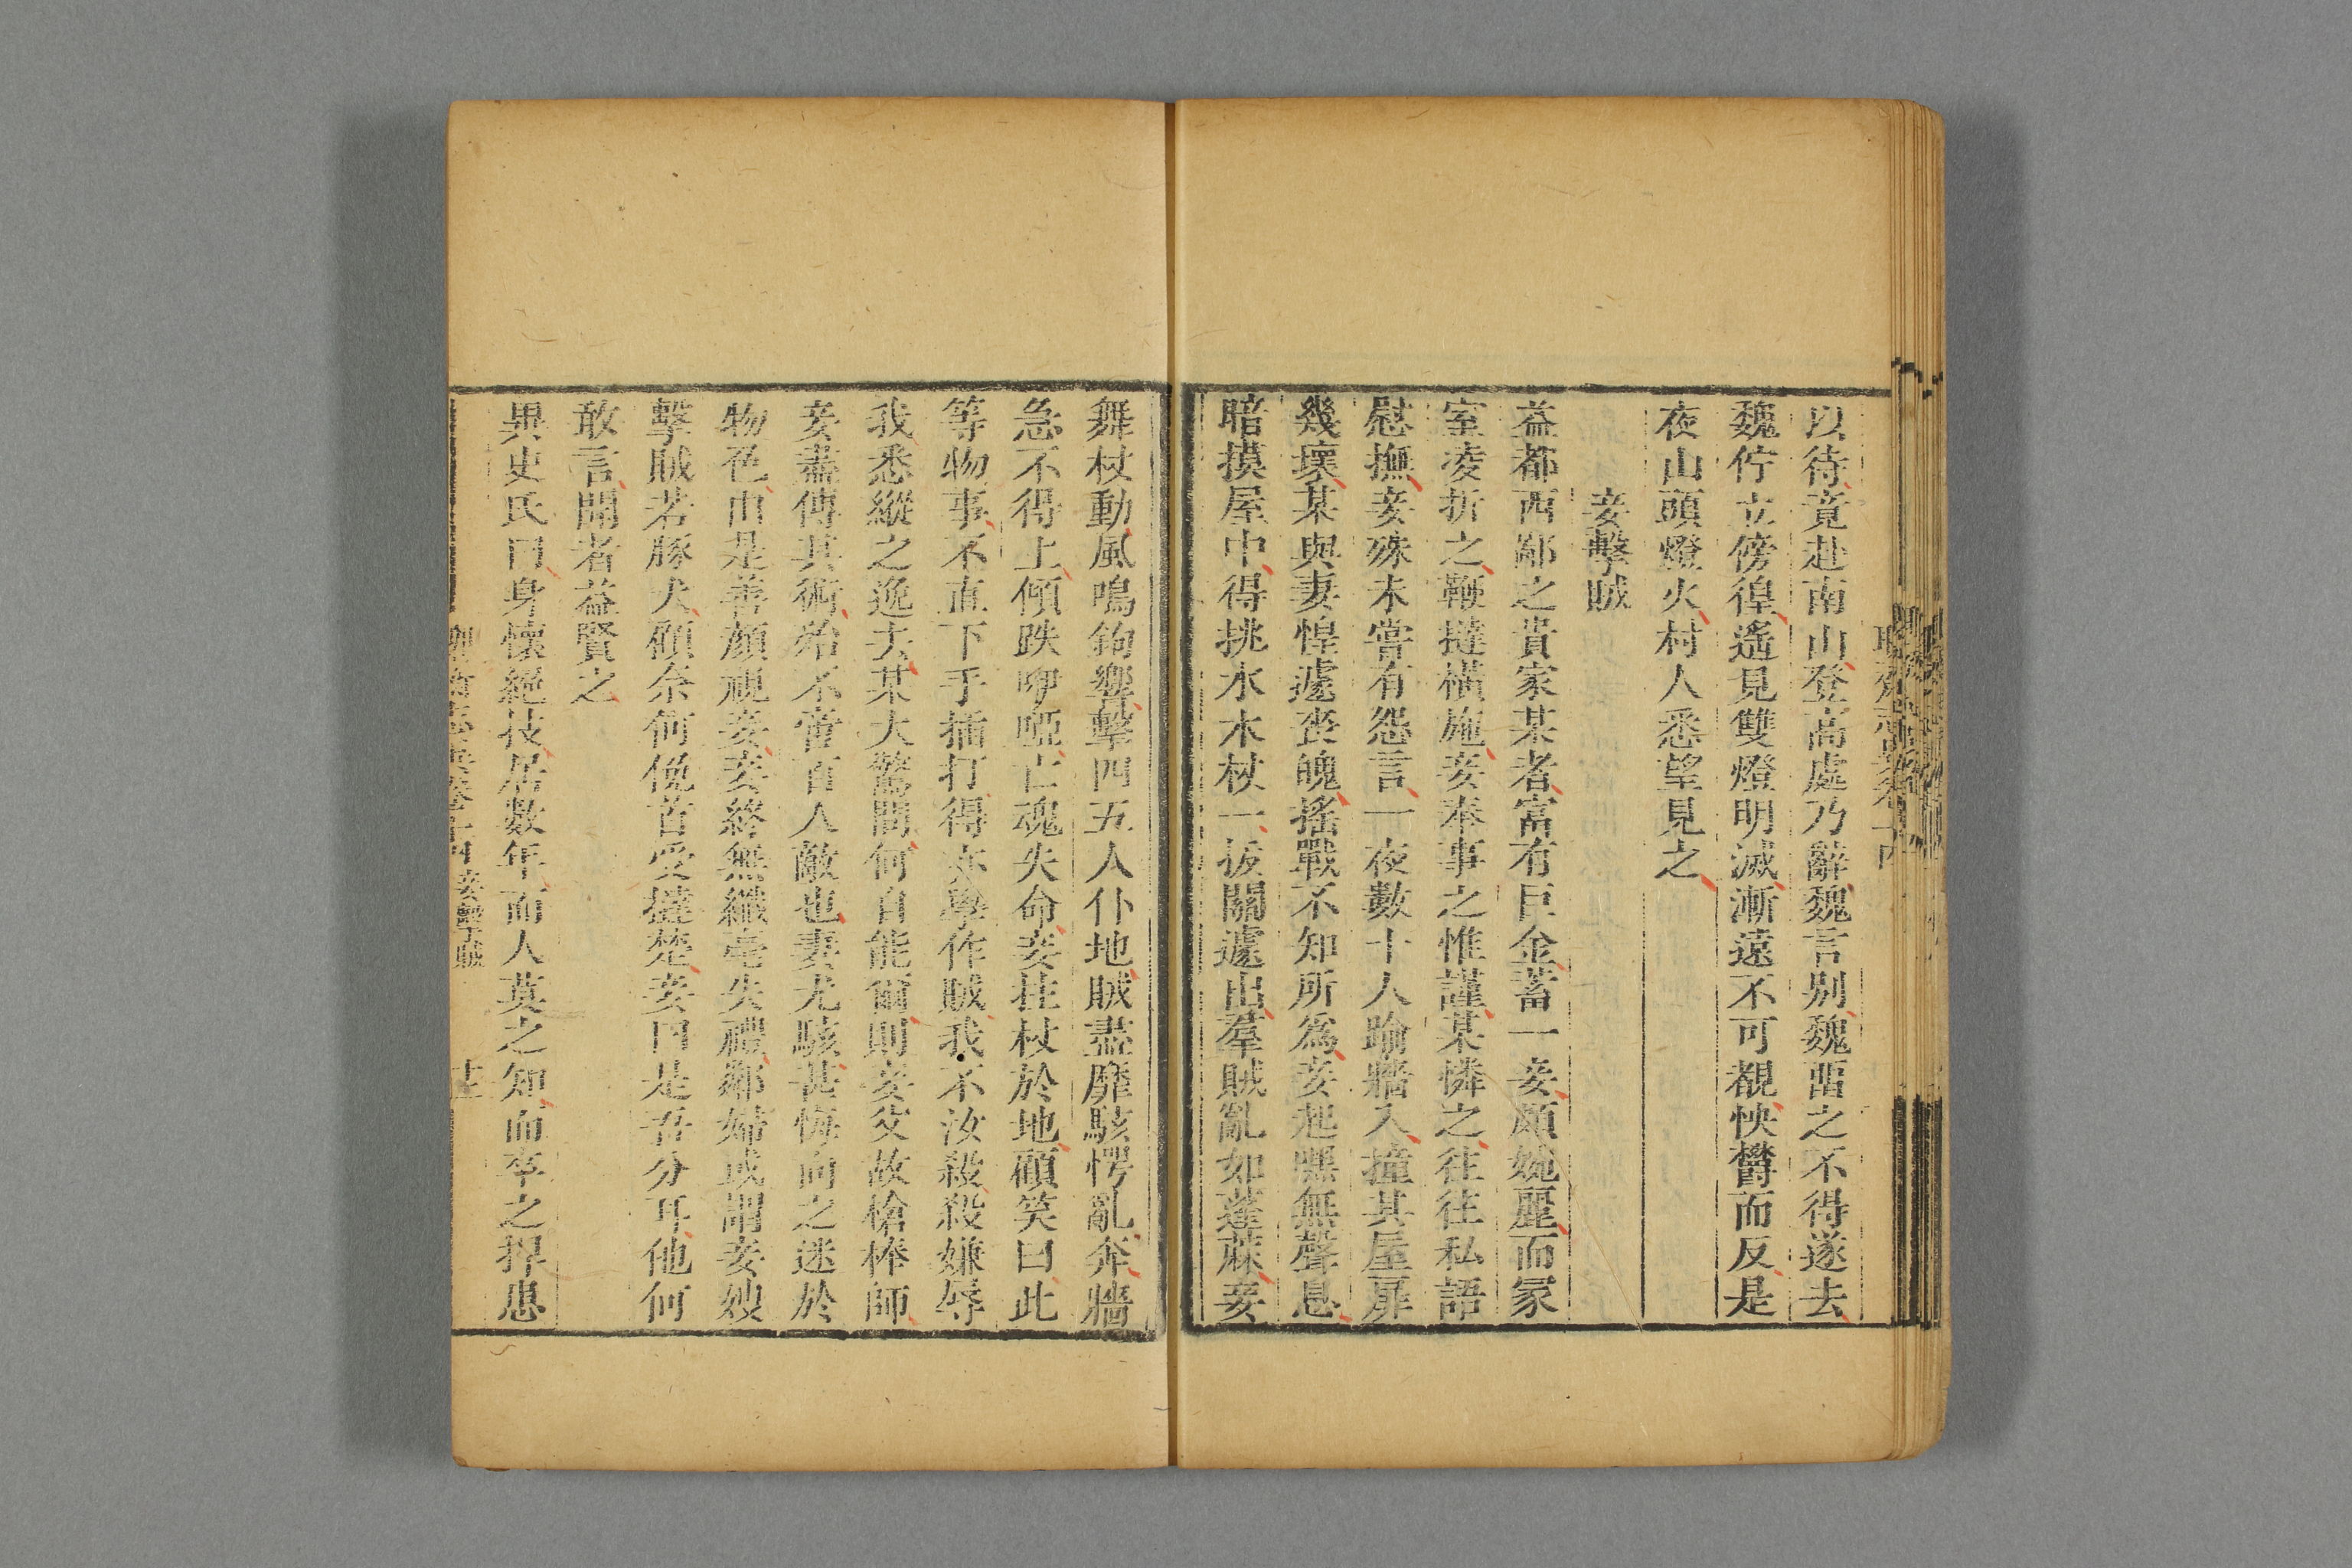 以待竟赴南山登高處乃辭魏言别魏畱之不得遂去
魏佇立傍徨遙見雙燈明滅漸遠不可覩怏欝而反是
夜山頭燈火村人悉望見之
妾擊賊
益都西鄙之貴家某者富有巨金蓄一妾頗婉麗而冡
室凌折之鞭撻橫施妾奉事之惟謹某憐之往往私語
慰撫妾殊未嘗有怨言一夜數十人踰牆入撞其屋扉
幾壞某與妻惶遽丧魄搖戰不知所為妾起嘿無聲息
暗摸屋中得挑水木杖一拔關遽出羣賊亂如蓬蔴妾
舞杖動風鳴鉤響擊四五人仆地賊盡靡駭愕亂奔牆
急不得上傾跌咿啞亡魂失命妾拄杖於地顧笑曰此
等物事不直下手插打得亦學作賊我不汝殺殺嫌辱
我悉縱之逸去某大驚問何自能爾則妾父故槍棒師
妾盡傳其術殆不啻百人敵也妻尤駭甚悔向之迷於
物色由是善顏視妾妾終無纖毫失禮鄰婦或謂妾嫂
擊賊若豚犬顧奈何俛首受撻楚妾曰是吾分耳他何
敢言聞者益賢之
異史氏曰身懷絕技居數年而人莫之知而卒之捍患
妾擊賊